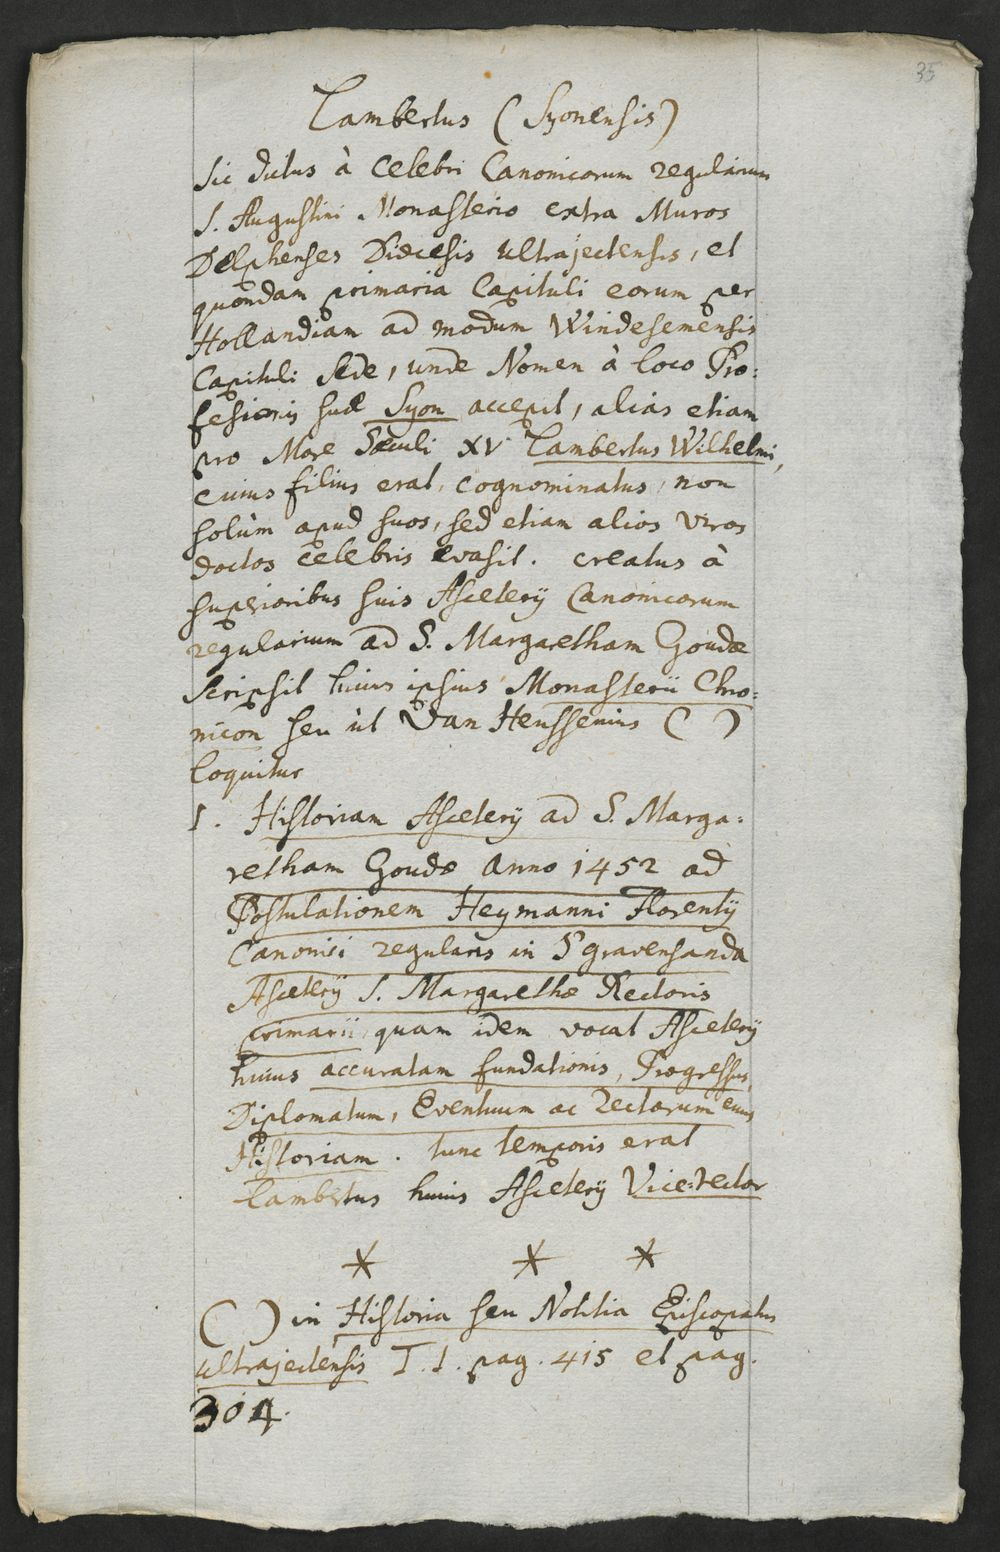 35
Lambertus (Syonensis)
Sic dictus à celebri Canonicorum regularium
S. Augustini Monasterio extra Muros
Delphenses Dioecesis Ultrajectensis, et
quondam primaria Capituli eorum per
Hollandiam ad modum Windesemensis
Capituli Sede, unde Nomen à loco Pro:
fesionis suæ Syon accepit, alias etiam
pro More Sæculi XV Lambertus Wilhelmi,
cuius filius erat, cognominatus, non
solùm apud suos, sed etiam alios viros
doctos celebris evasit. creatus à
superioribus suis Asceterij Canonicorum
regularium ad S. Margaretham Goudæ
scripsit huius ipsius Monasterii Chro:
nicon seu ùt Van Heussenius ( )
loquitur
1. Historiam Asceterij ad S. Marga:
retham Goudæ Anno 1452 ad
Postulationem Heymanni Florentij
Canonici regularis in S'gravensanda
Asceterij S. Margarethæ Rectoris
primarii quam idem vocat Asceterij
huius accuratam fundationis, Progressus,
Diplomatum, Eventuum ac Rectorum eius
Historiam. tunc temporis erat
Lambertus huius Asceterij Vice:rector
* * *
( ) in Historia seu Notitia Episcopatus
Ultrajectensis T. I. pag. 415 et pag.
304.